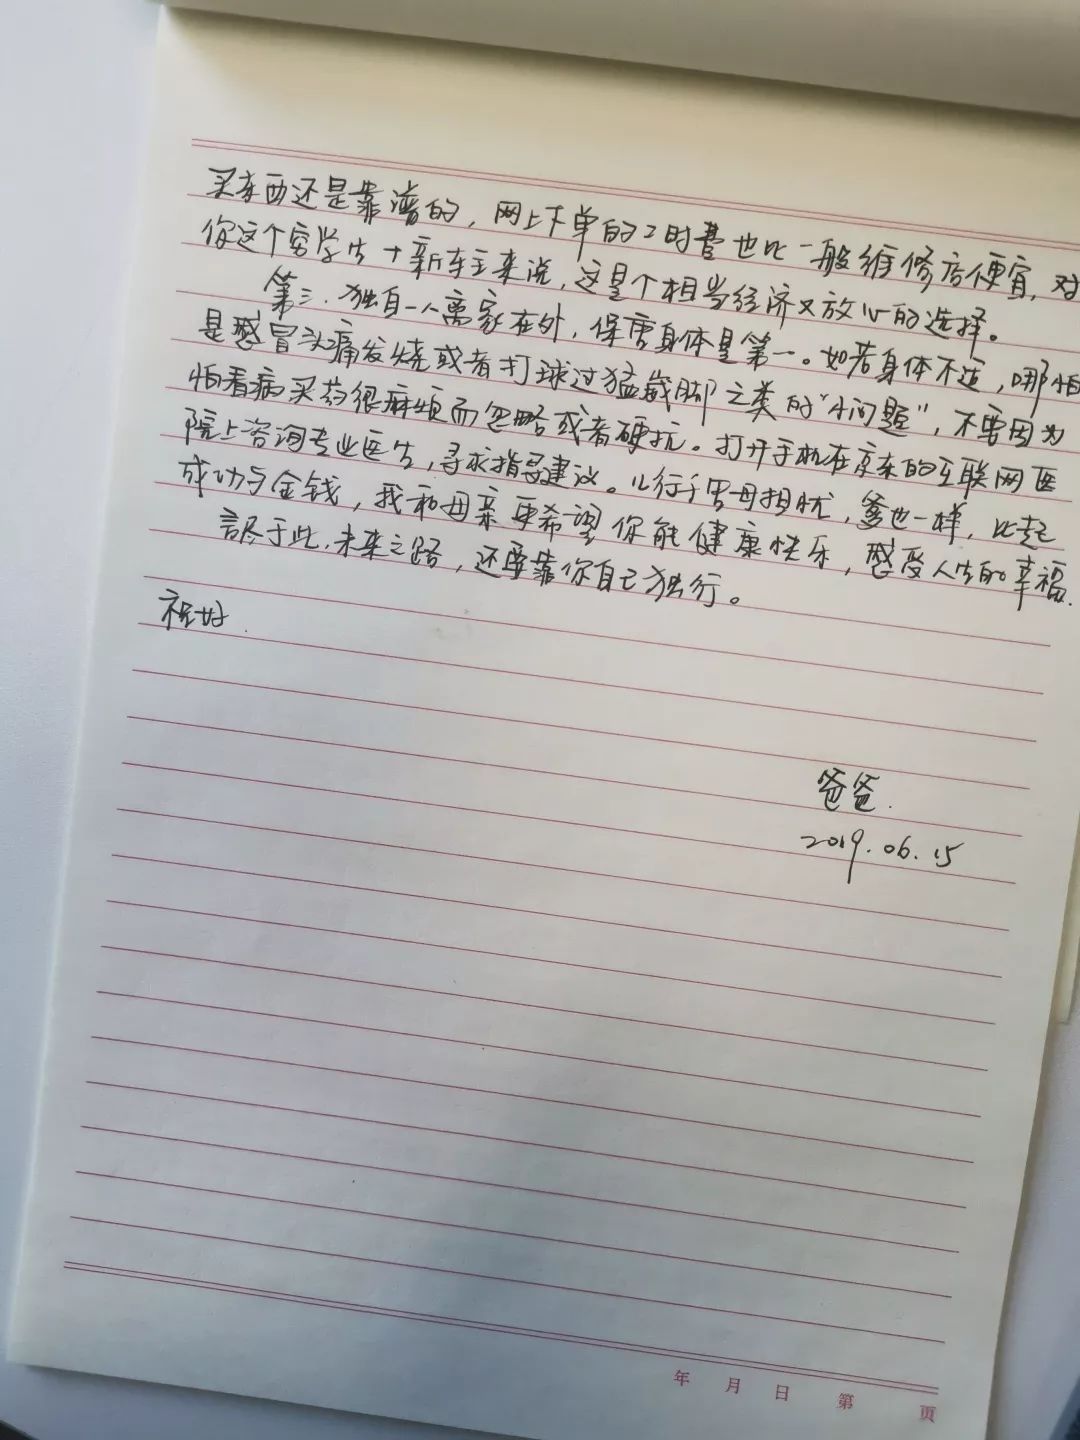 买东西还是靠谱的，网上下单的工时费也比一般维修店便宜，对
你这个穷学生+新车主来说，这是个相当经济又放心的选择。
第三．独自一人离家在外，保重身体是第一。如若身体不适，哪怕
是感冒头痛发烧或者打球过猛崴脚之类的“小问题”，不要因为
怕看病买药很麻烦而忽略或者硬抗。打开手机在京东的互联网医
院上咨询专业医生，寻求指导建议。儿行千里母担忧，爹也一样，比起
成功与金钱，我和母亲更希望你能健康快乐，感受人生的幸福．
言尽于此．未来之路，还要靠你自己独行。
祝好．
爸爸．
2019.06.15
年 月 日 第 页